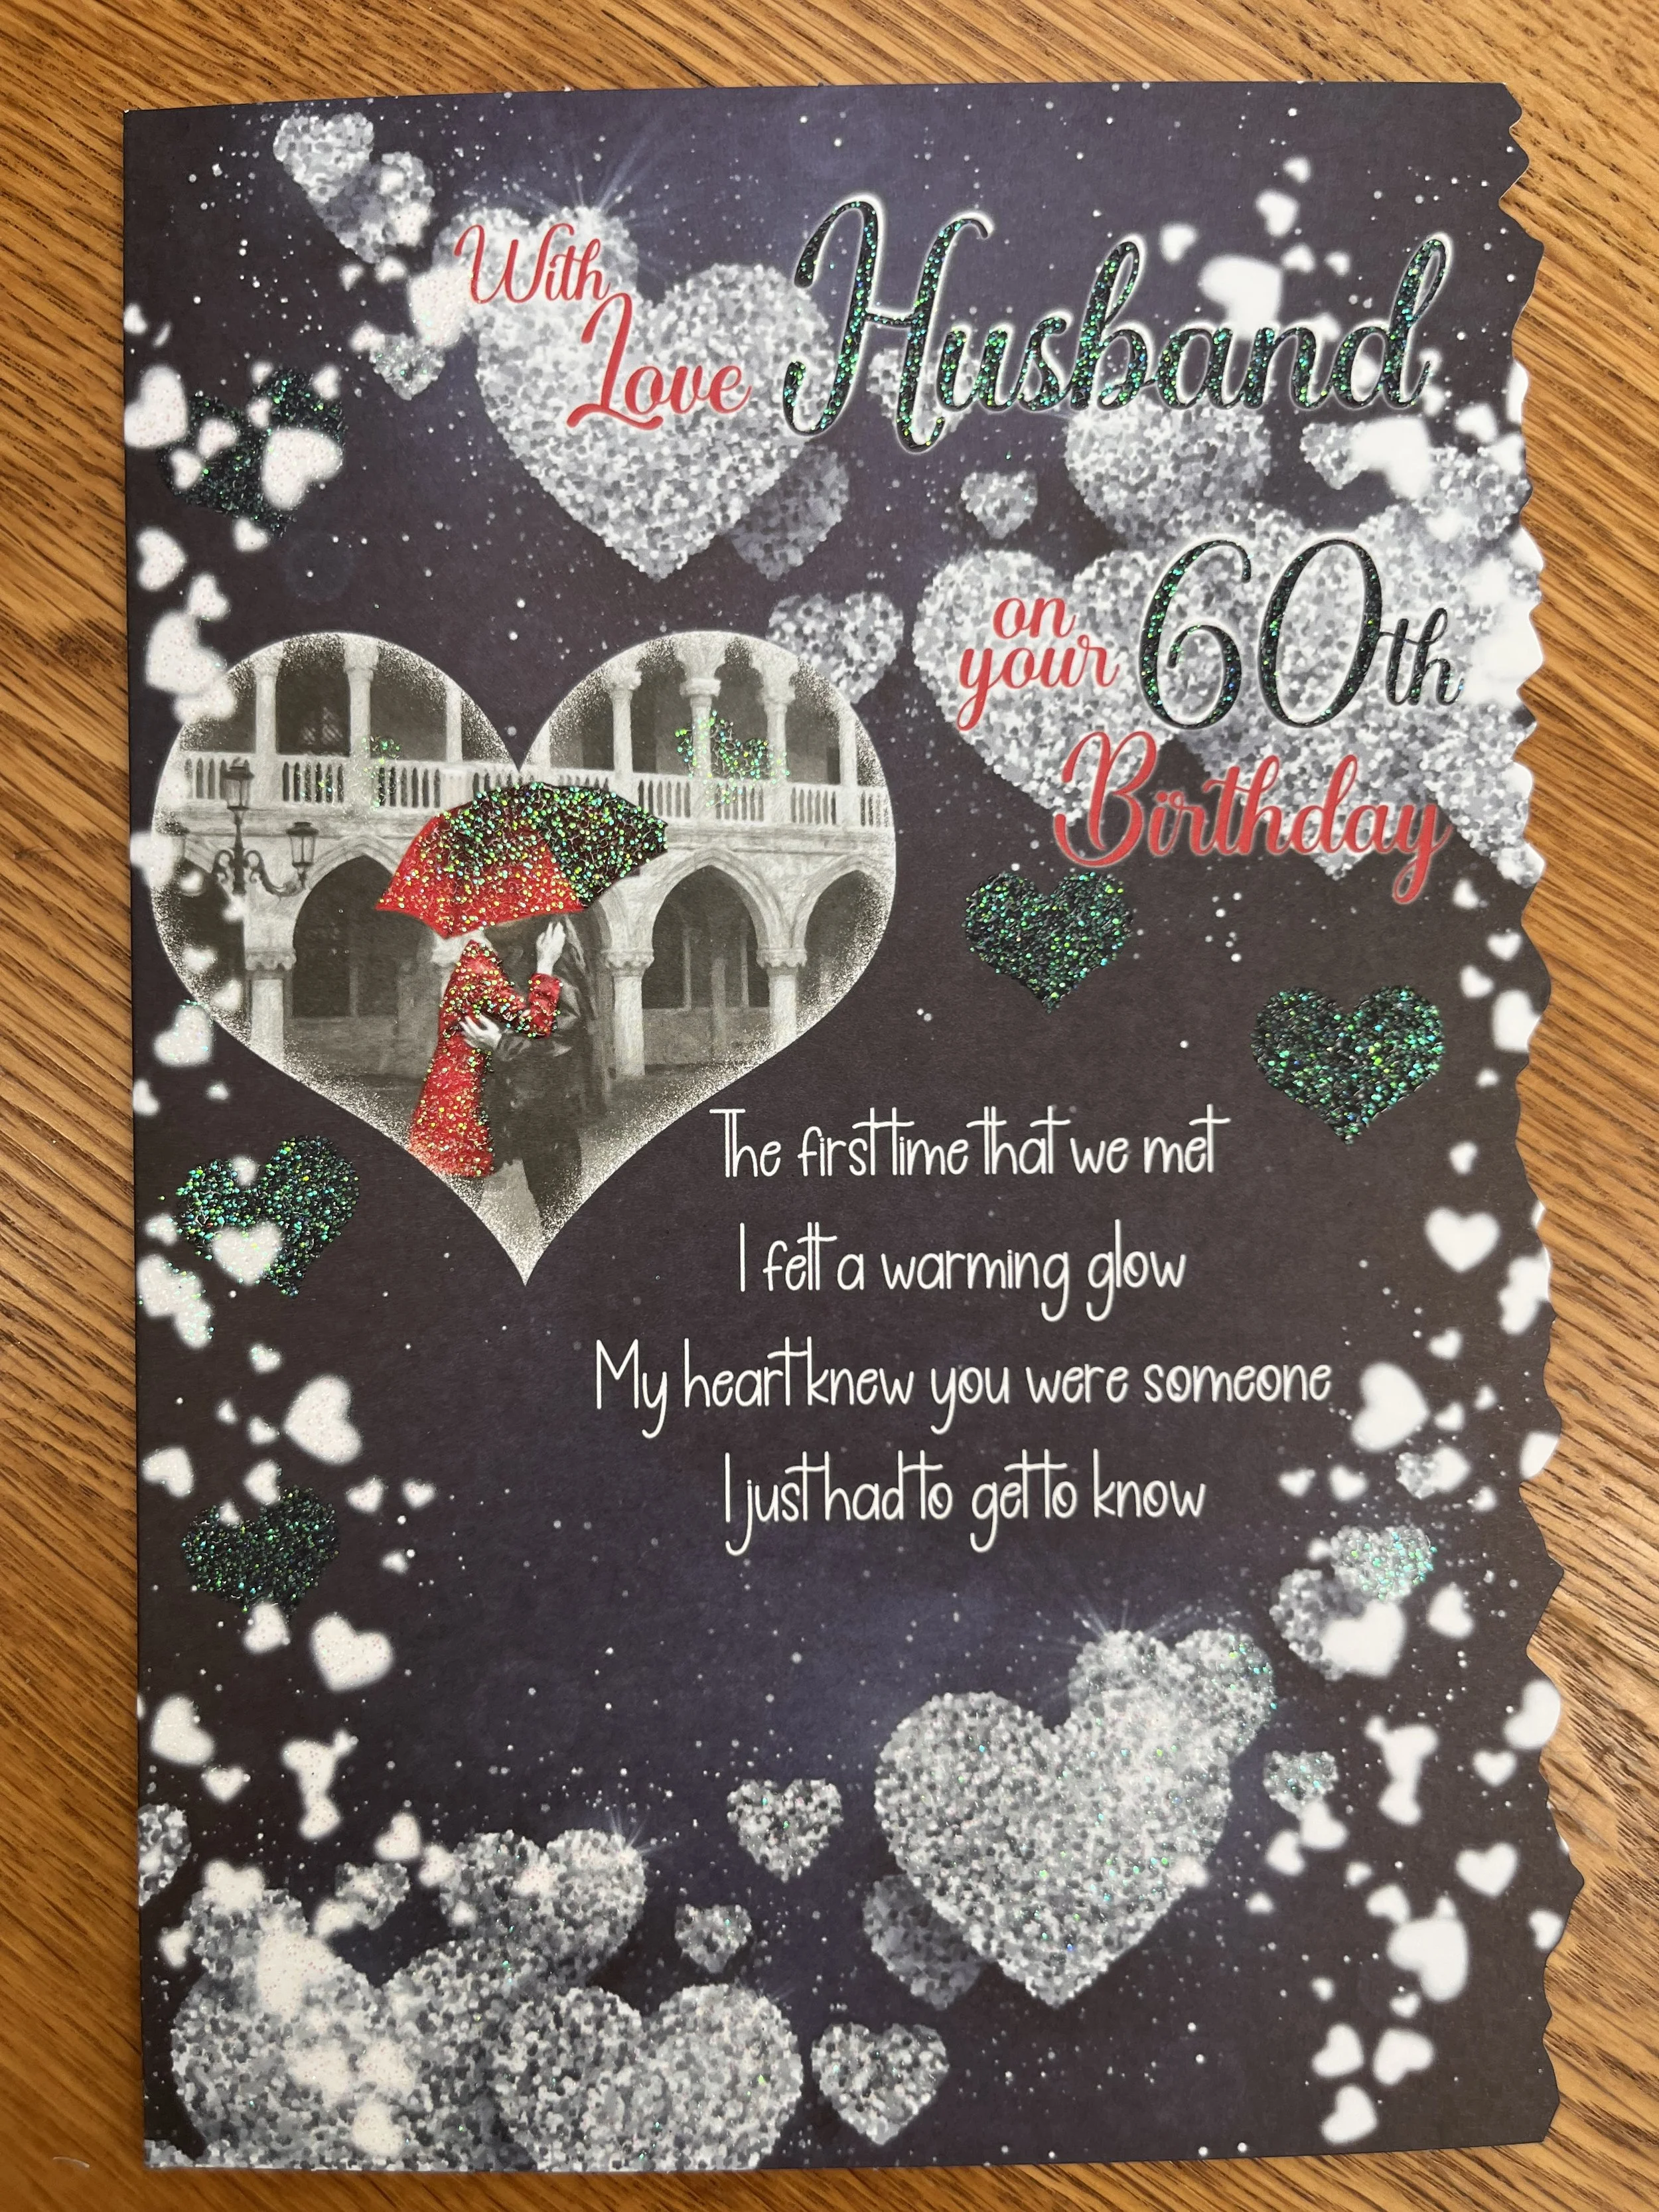 With
Love Husband
on
your 60th
Birthday
The first time that we met
I felt a warming glow
My heart knew you were someone
I just had to get to know